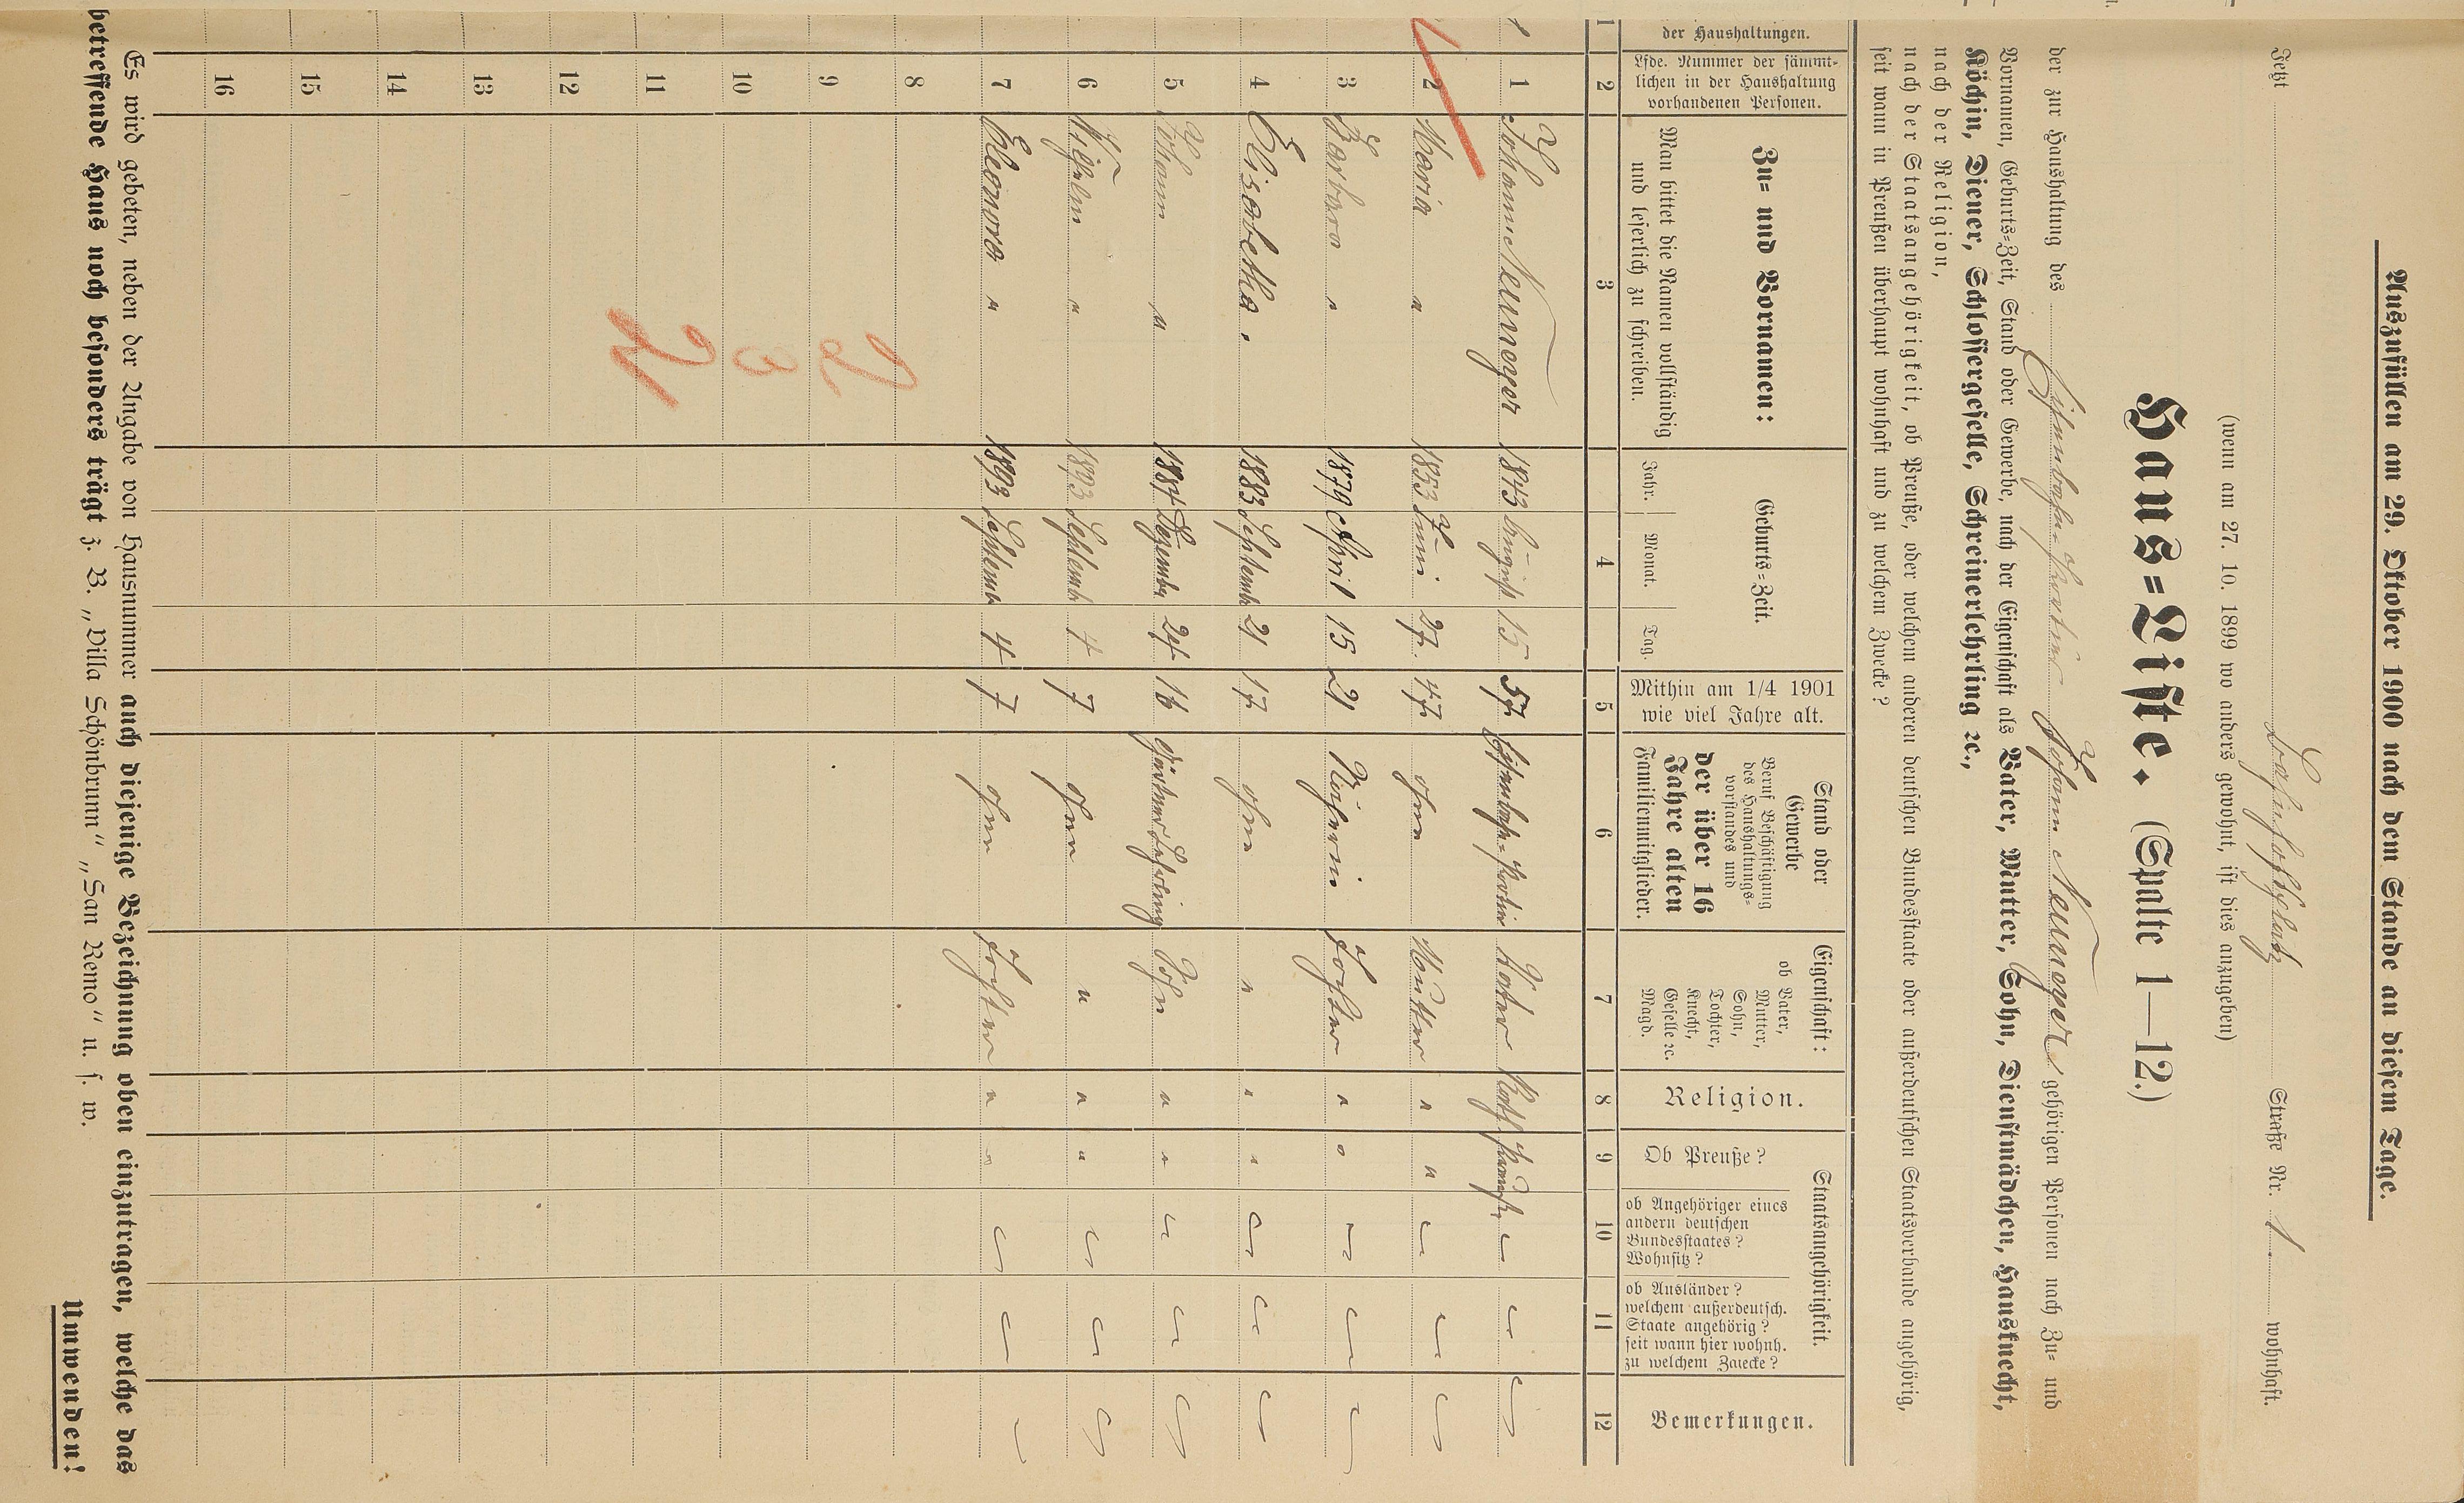 Auszufüllen am 29. Oktober 1900 nach dem Stande an diesem Tage.
Jetzt Bahnhofsplatz Straße Nr. 1 wohnhaft.
(wenn am 27. 10. 1899 wo anders gewohnt, ist dies anzugeben)
Haus=Liste. (Spalte 1—12.)
der zur Haushaltung des Johann Neunoger gehörigen Personen nach Zu= und
Vornamen, Geburts=Zeit, Stand oder Gewerbe, nach der Eigenschaft als Vater, Mutter, Sohn, Dienstmädchen, Hausknecht,
Köchin, Diener, Schlossergeselle, Schreinerlehrling ꝛc.,
nach der Religion,
nach der Staatsangehörigkeit, ob Preuße, oder welchem anderen deutschen Bundesstaate oder außerdeutschen Staatsverbande angehörig,
seit wann in Preußen überhaupt wohnhaft und zu welchem Zwecke?
der Haushaltungen.
Lfde. Nummer der sämmt-
lichen in der Haushaltung
vorhandenen Personen.
Zu= und Vornamen:
Man bittet die Namen vollständig
und leserlich zu schreiben.
Geburts=Zeit.
Jahr. Monat. Tag.
Mithin am 1/4 1901
wie viel Jahre alt.
Stand oder
Gewerbe
Beruf Beschäftigung
des Haushaltungs=
vorstandes und
der über 16
Jahre alten
Familienmitglieder.
Eigenschaft:
ob Vater,
Mutter,
Sohn,
Tochter,
Knecht,
Geselle ꝛc.
Magd.
Religion.
Staatsangehörigkeit.
Ob Preuße?
ob Angehöriger eines
andern deutschen
Bundesstaates?
Wohnsitz?
ob Ausländer?
welchem außerdeutsch.
Staate angehörig?
seit wann hier wohnh.
zu welchem Zwecke?
Bemerkungen.
1 2 3 4 5 6 7 8 9 10 11 12
1 1 Johann Neunoger 1843 August 15 57 Vater Kath. Preuße
2 Maria " 1853 Juni 27. 47. ohne Mutter " "
3 Barbara " 1879 April 15 21 Näherin Tochter "
4 Elisabetha " 1883 September 21 17 ohne " " "
5 Johann " 1884 Dezember 24 16 Gärtner Lehrling Sohn " "
6 Wilhelm " 1893 September 4 7 ohne " " "
7 Eleonora " 1893 September 4 7 ohne Tochter " "
8
9
10
11
12
13
14
15
16
Es wird gebeten, neben der Angabe von Hausnummer auch diejenige Bezeichnung oben einzutragen, welche das
betreffende Haus noch besonders trägt z. B. „Villa Schönbrunn“ „San Remo“ u. s. w.
Umwenden!